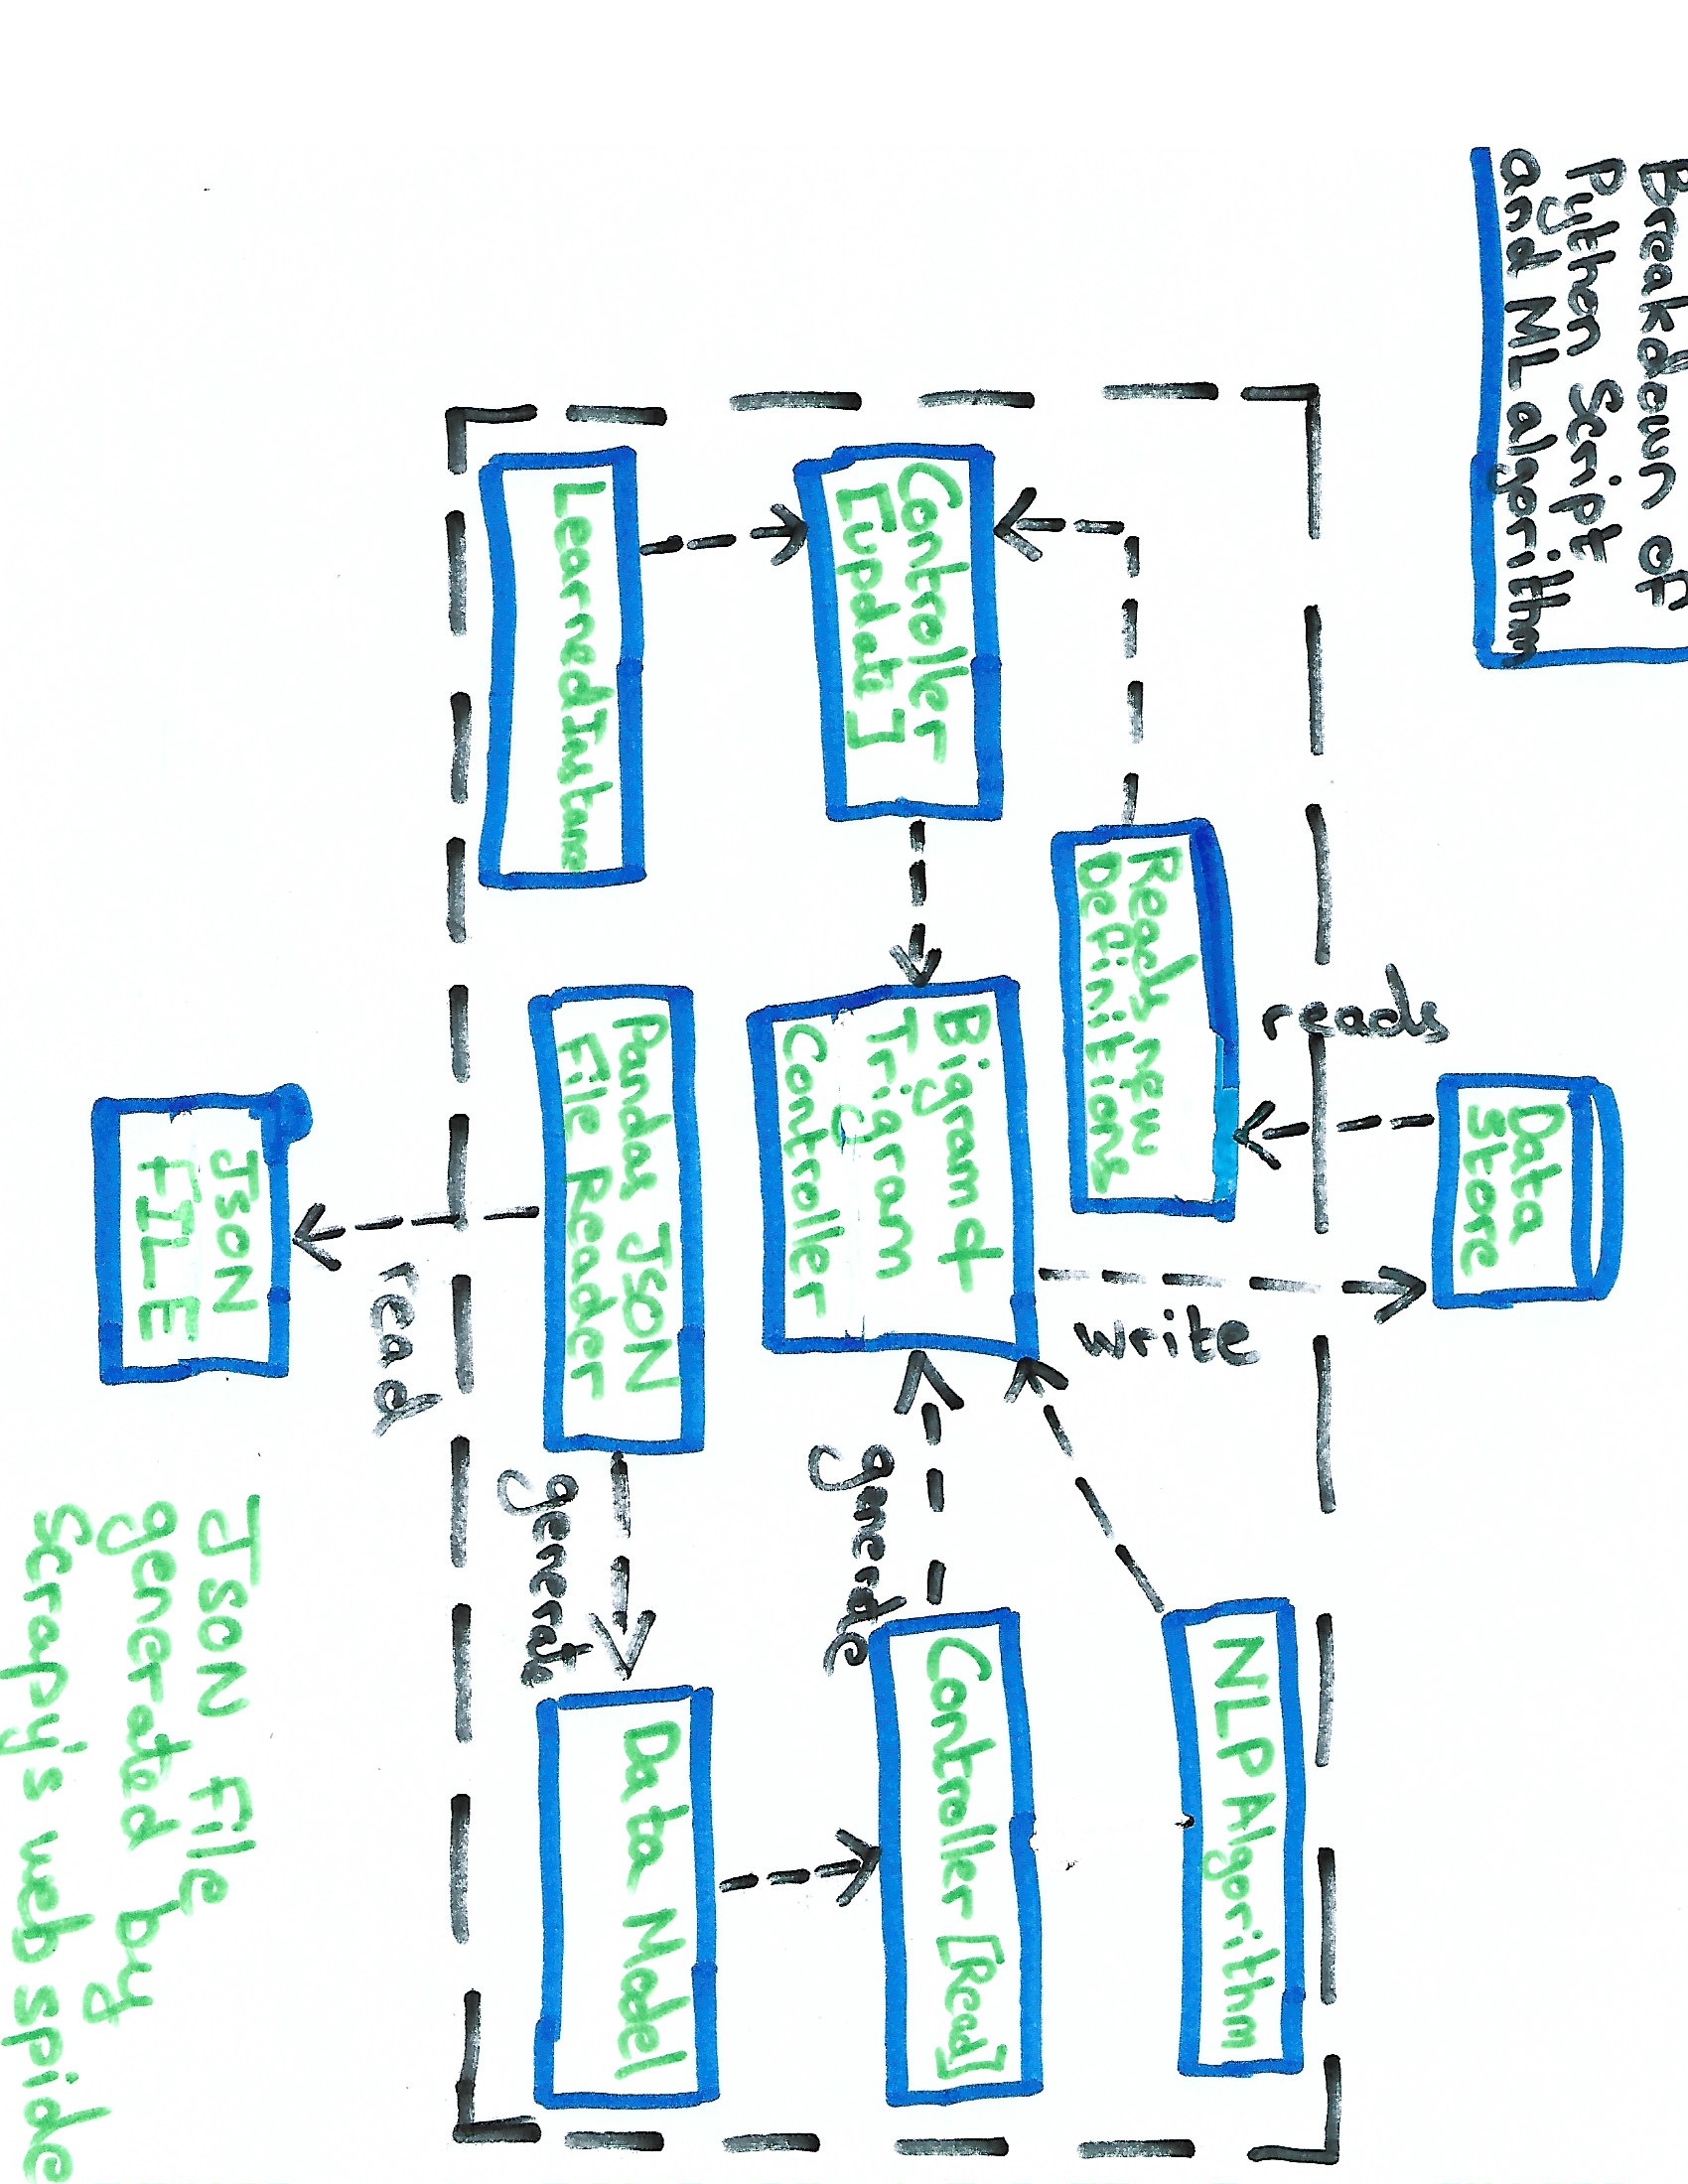 Breakdown of
Python Script
and ML algorithm
Data
Store
reads
write
NLP Algorithm
Reads new
Definitions
Controller
[update]
Bigram &
Trigram
Controller
Controller [Read]
generate
LearnedInstance
Pandas JSON
File Reader
generate
Data Model
read
JSON
FILE
JSON File
generated by
Scrapy's web spide